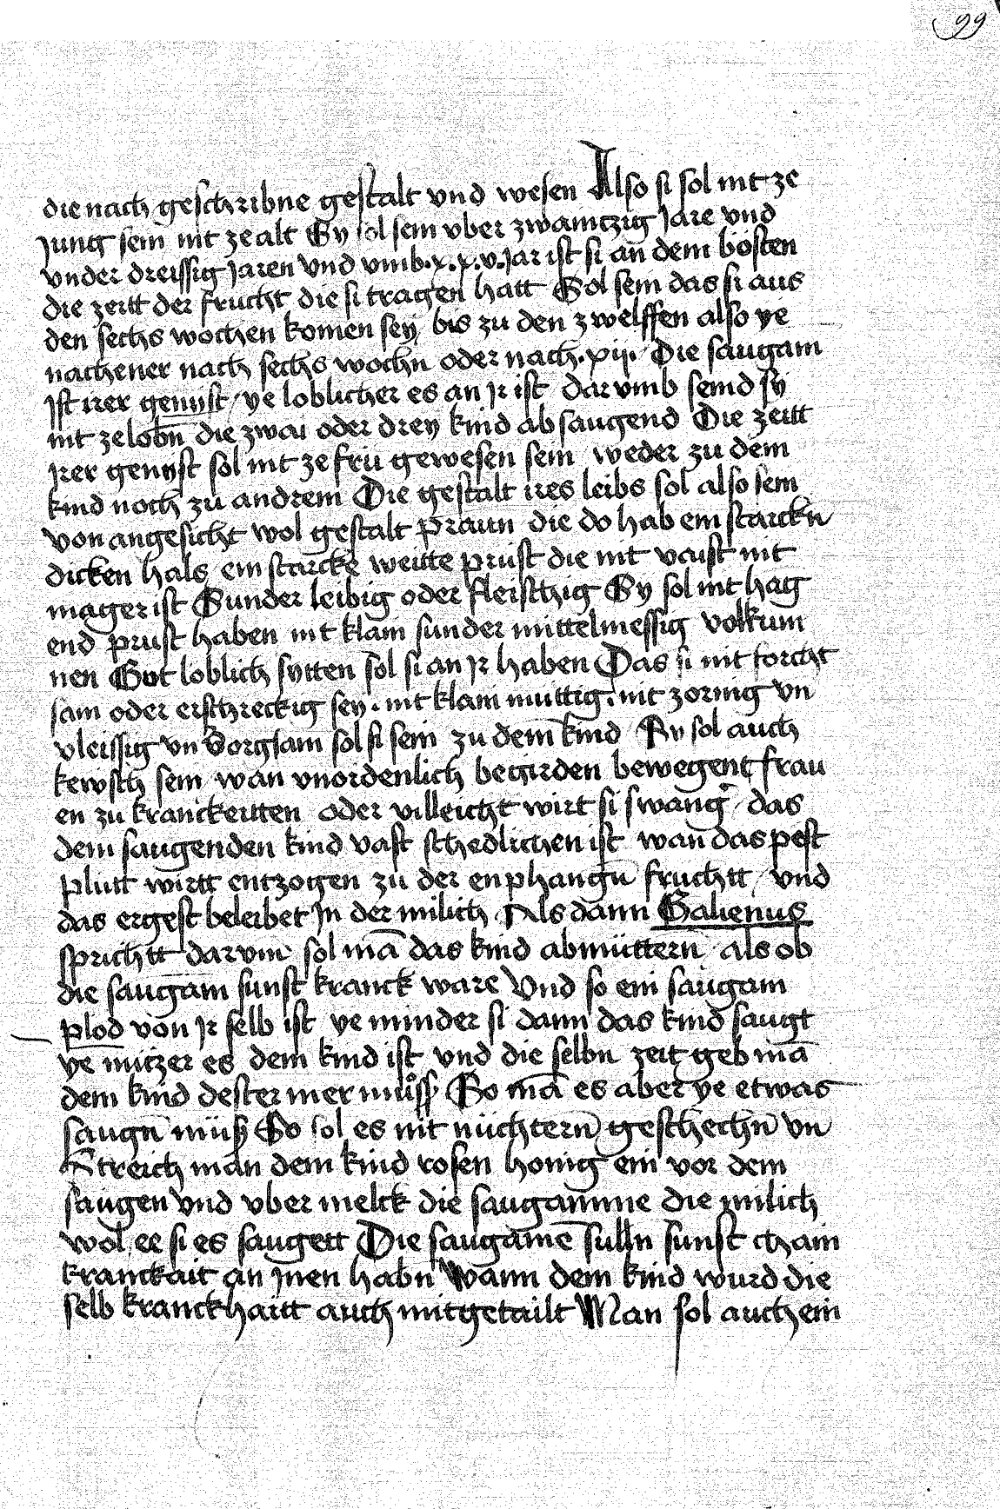 99
die nach geschribne gestalt vnd wesen Also si sol nit ze
Jung sein nit ze alt Sy sol sein vber zwaintzig Jare vnd
vnder dreissig Jaren vnd vmb .x.x.v. Jar ist si an dem bösten
die zeitt der frucht die si tragen hatt Sol sein das si aus
den sechs wochen komen sey bis zu den zwelffen also ye
nachener nach sechs wochñ oder nach .xij. Die saugam
Ist irer genyst / ye loblicher es an Ir ist dar vmb seind sy
nit ze lobñ die zwai oder drey kind ab saugend Die zeitt
Irer genyst sol nit ze fru gewesen sein weder zu dem
kind noch zu andrem Die gestalt ires leibs sol also sein
von angesicht wol gestalt praun die do hab ein starckñ
dicken hals ein starcke weitte prust die nit vaist nit
mager ist Sunder leibig oder fleischig Sy sol nit hag
end prust haben nit klain sunder mittelmessig volkum
nen Gut loblich sytten sol si an Ir haben Das si nit forcht
sam oder erschreckig sey . nit klain muttig . nit zornig vñ
vleissig vñ Sorgsam sol si sein zu dem kind Sy sol auch
kewsch sein wan vnordenlich begirden bewegent frau
en zu kranckeitten oder villeicht wirt si swang / das
dem saugenden kind vast schedlichen ist wañ das pest
plutt wirtt entzogen zu der enphangñ fruchtt / vnd
das ergest beleibet In der milich Als dann Galienus
sprichtt dar vm sol mā das kind abmüttern als ob
die saugam sunst kranck ware Vnd so ein saugam
plöd von Ir selb ist ye minder si dann das kind saugt
ye nutzer es dem kind ist vnd die selbñ zeit geb mā
dem kind dester mer muͦss So mā es aber ye etwas
saugñ müß So sol es nit nüchtern geschechñ vñ
Streich man dem kind rosen honig ein vor dem
saugen vnd vber melck die saugamme die milich
wol ee si es saugett Die saugāme sullñ sunst chain
kranckait an Inen habñ Wann dem kind wurd die
selb kranckhaitt auch mitgetailt Man sol auch ein